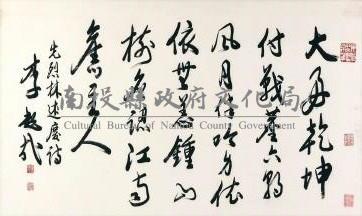 大好乾坤
付戰塵六朝
風月吟身依
依無恙鍾山
樹多謝江南
舊主人
先烈林述慶詩
李超哉
南投縣政府文化局
Cultural Bureau of Nantou County Government